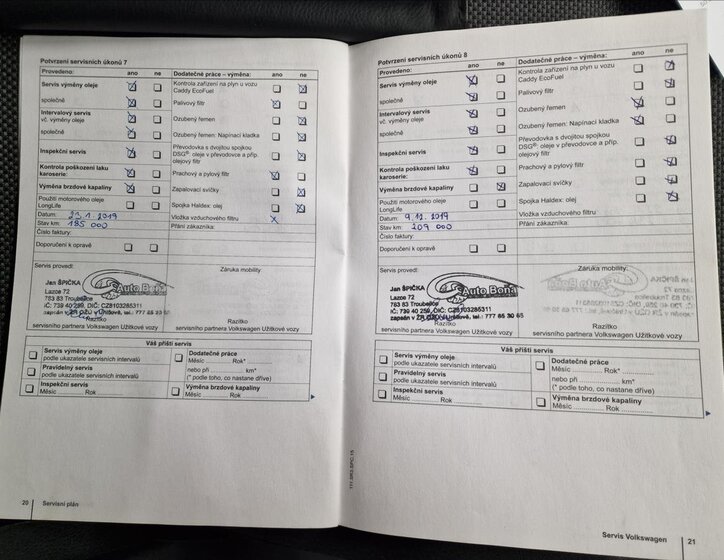 Potvrzení servisních úkonů 7
Provedeno: ano ne Dodatečné práce – výměna: ano ne
Servis výměny oleje Kontrola zařízení na plyn u vozu
Caddy EcoFuel
společně Palivový filtr
Intervalový servis
vč. výměny oleje Ozubený řemen
společně Ozubený řemen: Napínací kladka
Inspekční servis Převodovka s dvojitou spojkou
DSG®: oleje v převodovce a příp.
olejový filtr
Kontrola poškození laku
karoserie: Prachový a pylový filtr
Výměna brzdové kapaliny Zapalovací svíčky
Použití motorového oleje
LongLife Spojka Haldex: olej
Datum: 21. 1. 2019 Vložka vzduchového filtru X
Stav km: 185 000 Přání zákazníka:
Číslo faktury:
Doporučení k opravě
Servis provedl: Záruka mobility:
Jan ŠPIČKA
Lazce 72
783 83 Troubelice
IČ: 739 40 259, DIČ: CZ8103285311
zapsán v ŽR OŽÚ v Uničově, tel.: 777 85 30 65
Auto Bona
Razítko Razítko
servisního partnera Volkswagen Užitkové vozy servisního partnera Volkswagen Užitkové vozy
Váš příští servis
Servis výměny oleje
podle ukazatele servisních intervalů
Pravidelný servis
podle ukazatele servisních intervalů
Inspekční servis
Měsíc Rok
Dodatečné práce
Měsíc Rok*
nebo při km*
(* podle toho, co nastane dříve)
Výměna brzdové kapaliny
Měsíc Rok
20 Servisní plán
Potvrzení servisních úkonů 8
Provedeno: ano ne Dodatečné práce – výměna: ano ne
Servis výměny oleje Kontrola zařízení na plyn u vozu
Caddy EcoFuel
společně Palivový filtr
Intervalový servis
vč. výměny oleje Ozubený řemen
společně Ozubený řemen: Napínací kladka
Inspekční servis Převodovka s dvojitou spojkou
DSG®: oleje v převodovce a příp.
olejový filtr
Kontrola poškození laku
karoserie: Prachový a pylový filtr
Výměna brzdové kapaliny Zapalovací svíčky
Použití motorového oleje
LongLife Spojka Haldex: olej
Datum: 9. 12. 2019 Vložka vzduchového filtru
Stav km: 209 000 Přání zákazníka:
Číslo faktury:
Doporučení k opravě
Servis provedl: Záruka mobility:
Jan ŠPIČKA
Lazce 72
783 83 Troubelice
IČ: 739 40 259, DIČ: CZ8103285311
zapsán v ŽR OŽÚ v Uničově, tel.: 777 85 30 65
Auto Bona
Razítko Razítko
servisního partnera Volkswagen Užitkové vozy servisního partnera Volkswagen Užitkové vozy
Váš příští servis
Servis výměny oleje
podle ukazatele servisních intervalů
Pravidelný servis
podle ukazatele servisních intervalů
Inspekční servis
Měsíc Rok
Dodatečné práce
Měsíc Rok*
nebo při km*
(* podle toho, co nastane dříve)
Výměna brzdové kapaliny
Měsíc Rok
Servis Volkswagen 21